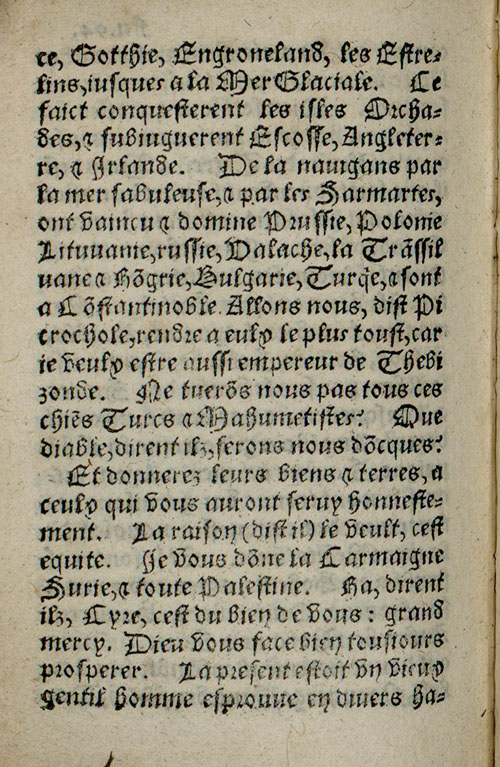 ce, Gotthie, Engroneland, les Estre-
lins, iusques a la Mer Glaciale. Ce
faict conquesterent les isles Orcha-
des, ⁊ subiuguerent Escosse, Angleter-
re, ⁊ Irlande. De la nauigans par
la mer sabuleuse, ⁊ par les Sarmartes,
ont vaincu ⁊ domine Prussie, Polonie
Lituuanie, russie, Valache, la Trãssil
uane ⁊ Hõgrie, Bulgarie, Turq̃e, ⁊ sont
a Cõstantinoble. Allons nous, dist Pi
crochole, rendre a eulx le plus toust, car
ie veulx estre aussi empereur de Thebi
zonde. Ne tuerõs nous pas tous ces
chiẽs Turcs ⁊ Mahumetistes? Que
diable, dirent ilz, ferons nous dõcques?
Et donnerez leurs biens ⁊ terres, a
ceulx qui vous auront seruy honneste-
ment. La raison (dist il) le veult, cest
equite. Ie vous dõne la Carmaigne
Surie, ⁊ toute Palestine. Ha, dirent
ilz, Cyre, cest du bien de vous : grand
mercy. Dieu vous face bien tousiours
prosperer. La present estoit vn vieux
gentil homme esprouue en diuers ha-